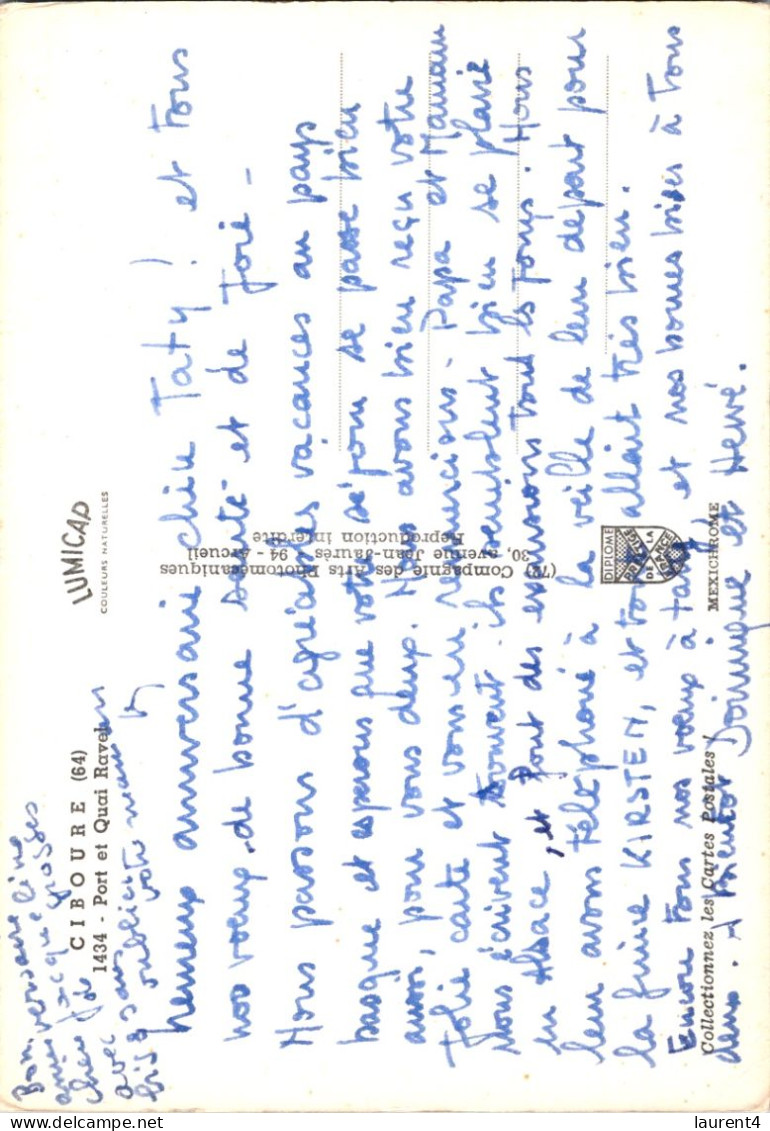 Bon
anniversaire
chère Jacqueline
avec de grosses
bises sans oublier
votre maman
CIBOURE (64)
1434 - Port et Quai Ravel
LUMICAP
COULEURS NATURELLES
heureux anniversaire chère Taty ! et tous
nos voeux de bonne santé et de joie -
Nous passons d'agréables vacances au pays
basque et espérons que votre séjour se passe bien
aussi, pour vous deux. Nous avons bien reçu votre
jolie carte et vous en remercions - Papa et Maman
nous écrivent souvent. ils semblent bien se plaire
en Alsace, et font des excursions tous les jours. Nous
leur avons téléphoné à la veille de leur départ pour
la firme KIRSTEN, et tout allait très bien.
Encore tous nos voeux à taty et nos bonnes bises à tous
deux. A bientôt Dominique et Hervé.
(72) Compagnie des Arts Photomécaniques
30, avenue Jean-Jaurès - 94 - Arcueil
Reproduction interdite
DIPLOME
PRESTIGE
DE LA
FRANCE
MEXICHROME
Collectionnez les Cartes Postales !
delcampe.net
laurent4